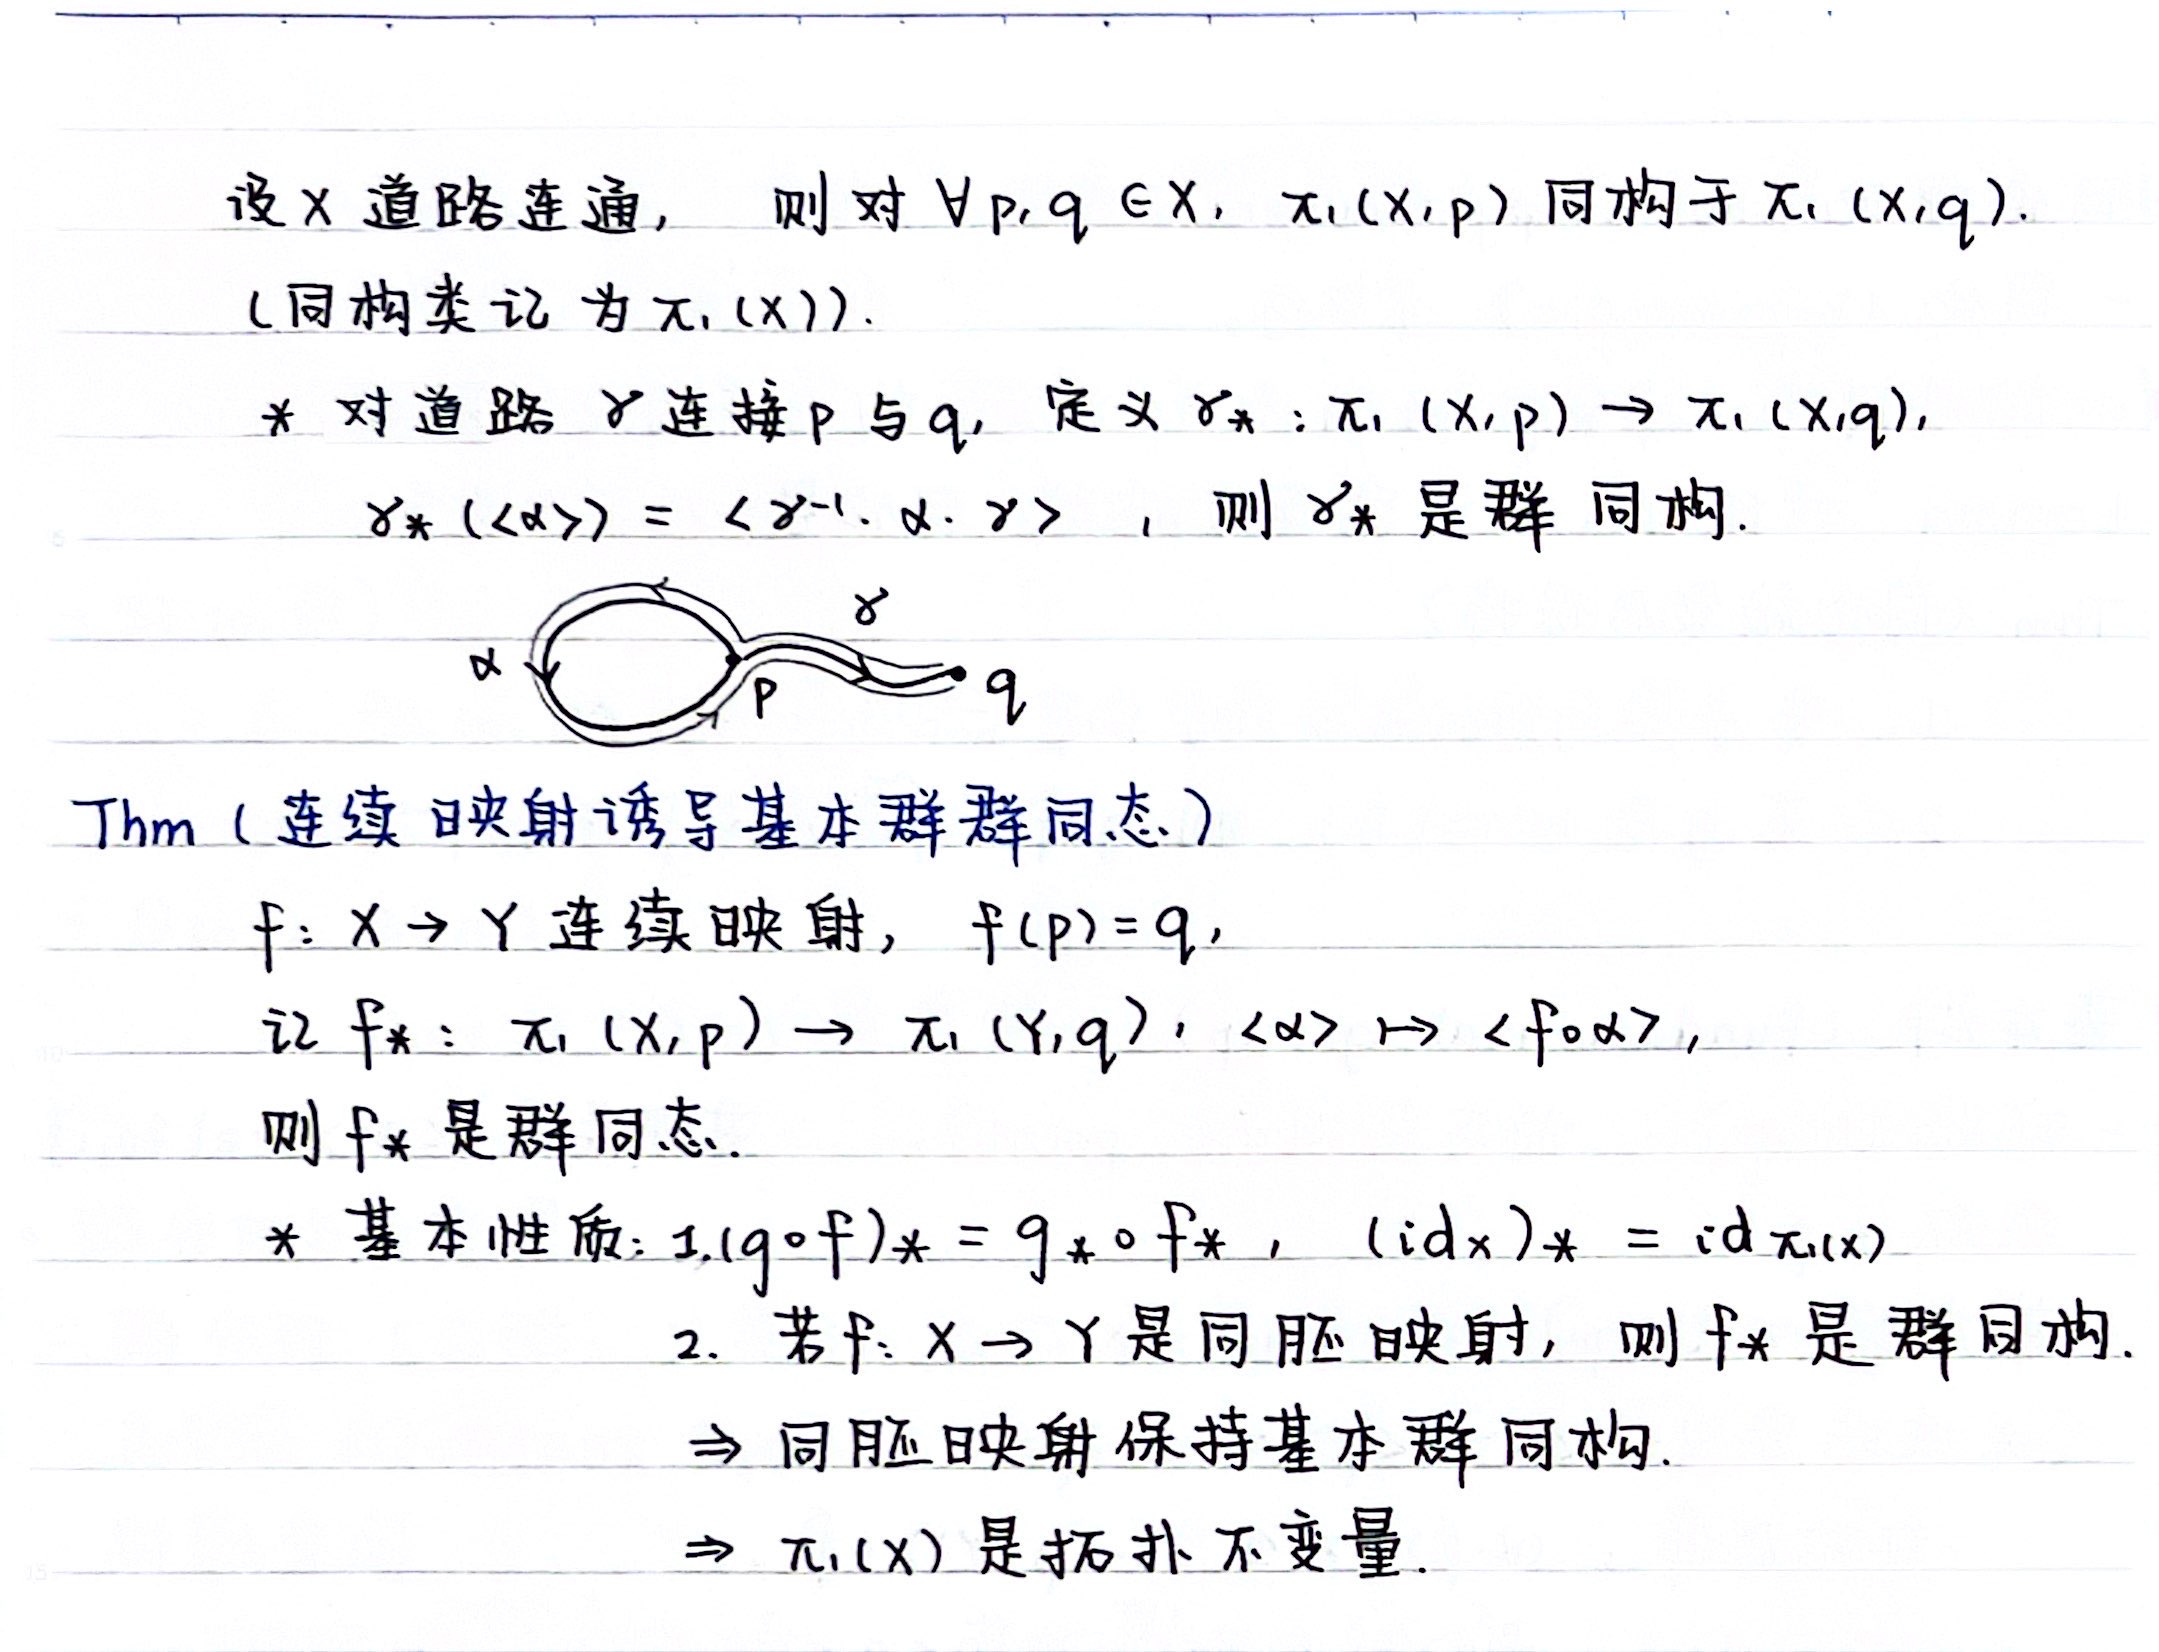 设 X 道路连通, 则对 ∀ p, q ∈ X, π₁(X, p) 同构于 π₁(X, q).
(同构类记为 π₁(X)).
* 对道路 γ 连接 p 与 q, 定义 γ* : π₁(X, p) → π₁(X, q),
γ*(<α>) = <γ⁻¹·α·γ>, 则 γ* 是群同构.
γ
α
p
q
Thm (连续映射诱导基本群群同态)
f: X → Y 连续映射, f(p) = q,
记 f*: π₁(X, p) → π₁(Y, q), <α> ↦ <f∘α>,
则 f* 是群同态.
* 基本性质: 1. (g∘f)* = g* ∘ f*, (id_X)* = id_π₁(X)
2. 若 f: X → Y 是同胚映射, 则 f* 是群同构.
⇒ 同胚映射保持基本群同构.
⇒ π₁(X) 是拓扑不变量.